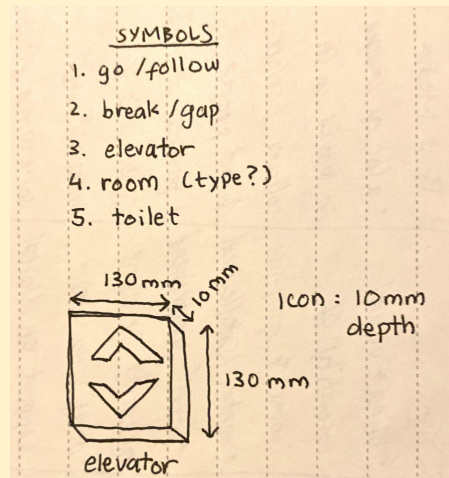 SYMBOLS
1. go/follow
2. break/gap
3. elevator
4. room (type?)
5. toilet
130 mm
10mm
Icon: 10mm
depth
130 mm
elevator